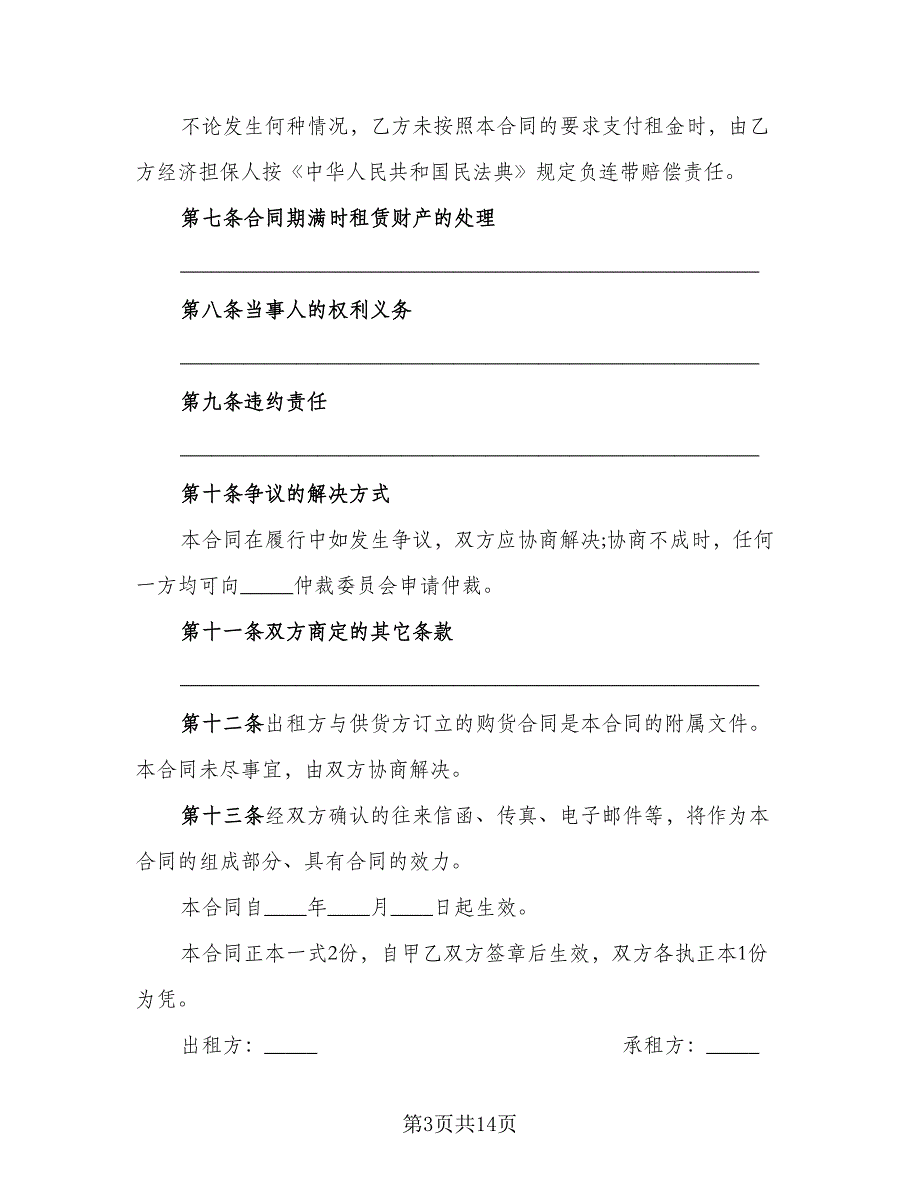 不论发生何种情况，乙方未按照本合同的要求支付租金时，由乙
方经济担保人按《中华人民共和国民法典》规定负连带赔偿责任。
第七条合同期满时租赁财产的处理
_______________________________________________________
第八条当事人的权利义务
_______________________________________________________
第九条违约责任
_______________________________________________________
第十条争议的解决方式
本合同在履行中如发生争议，双方应协商解决;协商不成时，任何
一方均可向_____仲裁委员会申请仲裁。
第十一条双方商定的其它条款
_______________________________________________________
第十二条出租方与供货方订立的购货合同是本合同的附属文件。
本合同未尽事宜，由双方协商解决。
第十三条经双方确认的往来信函、传真、电子邮件等，将作为本
合同的组成部分、具有合同的效力。
本合同自____年____月____日起生效。
本合同正本一式2份，自甲乙双方签章后生效，双方各执正本1份
为凭。
出租方：_____ 承租方：_____
第3页共14页